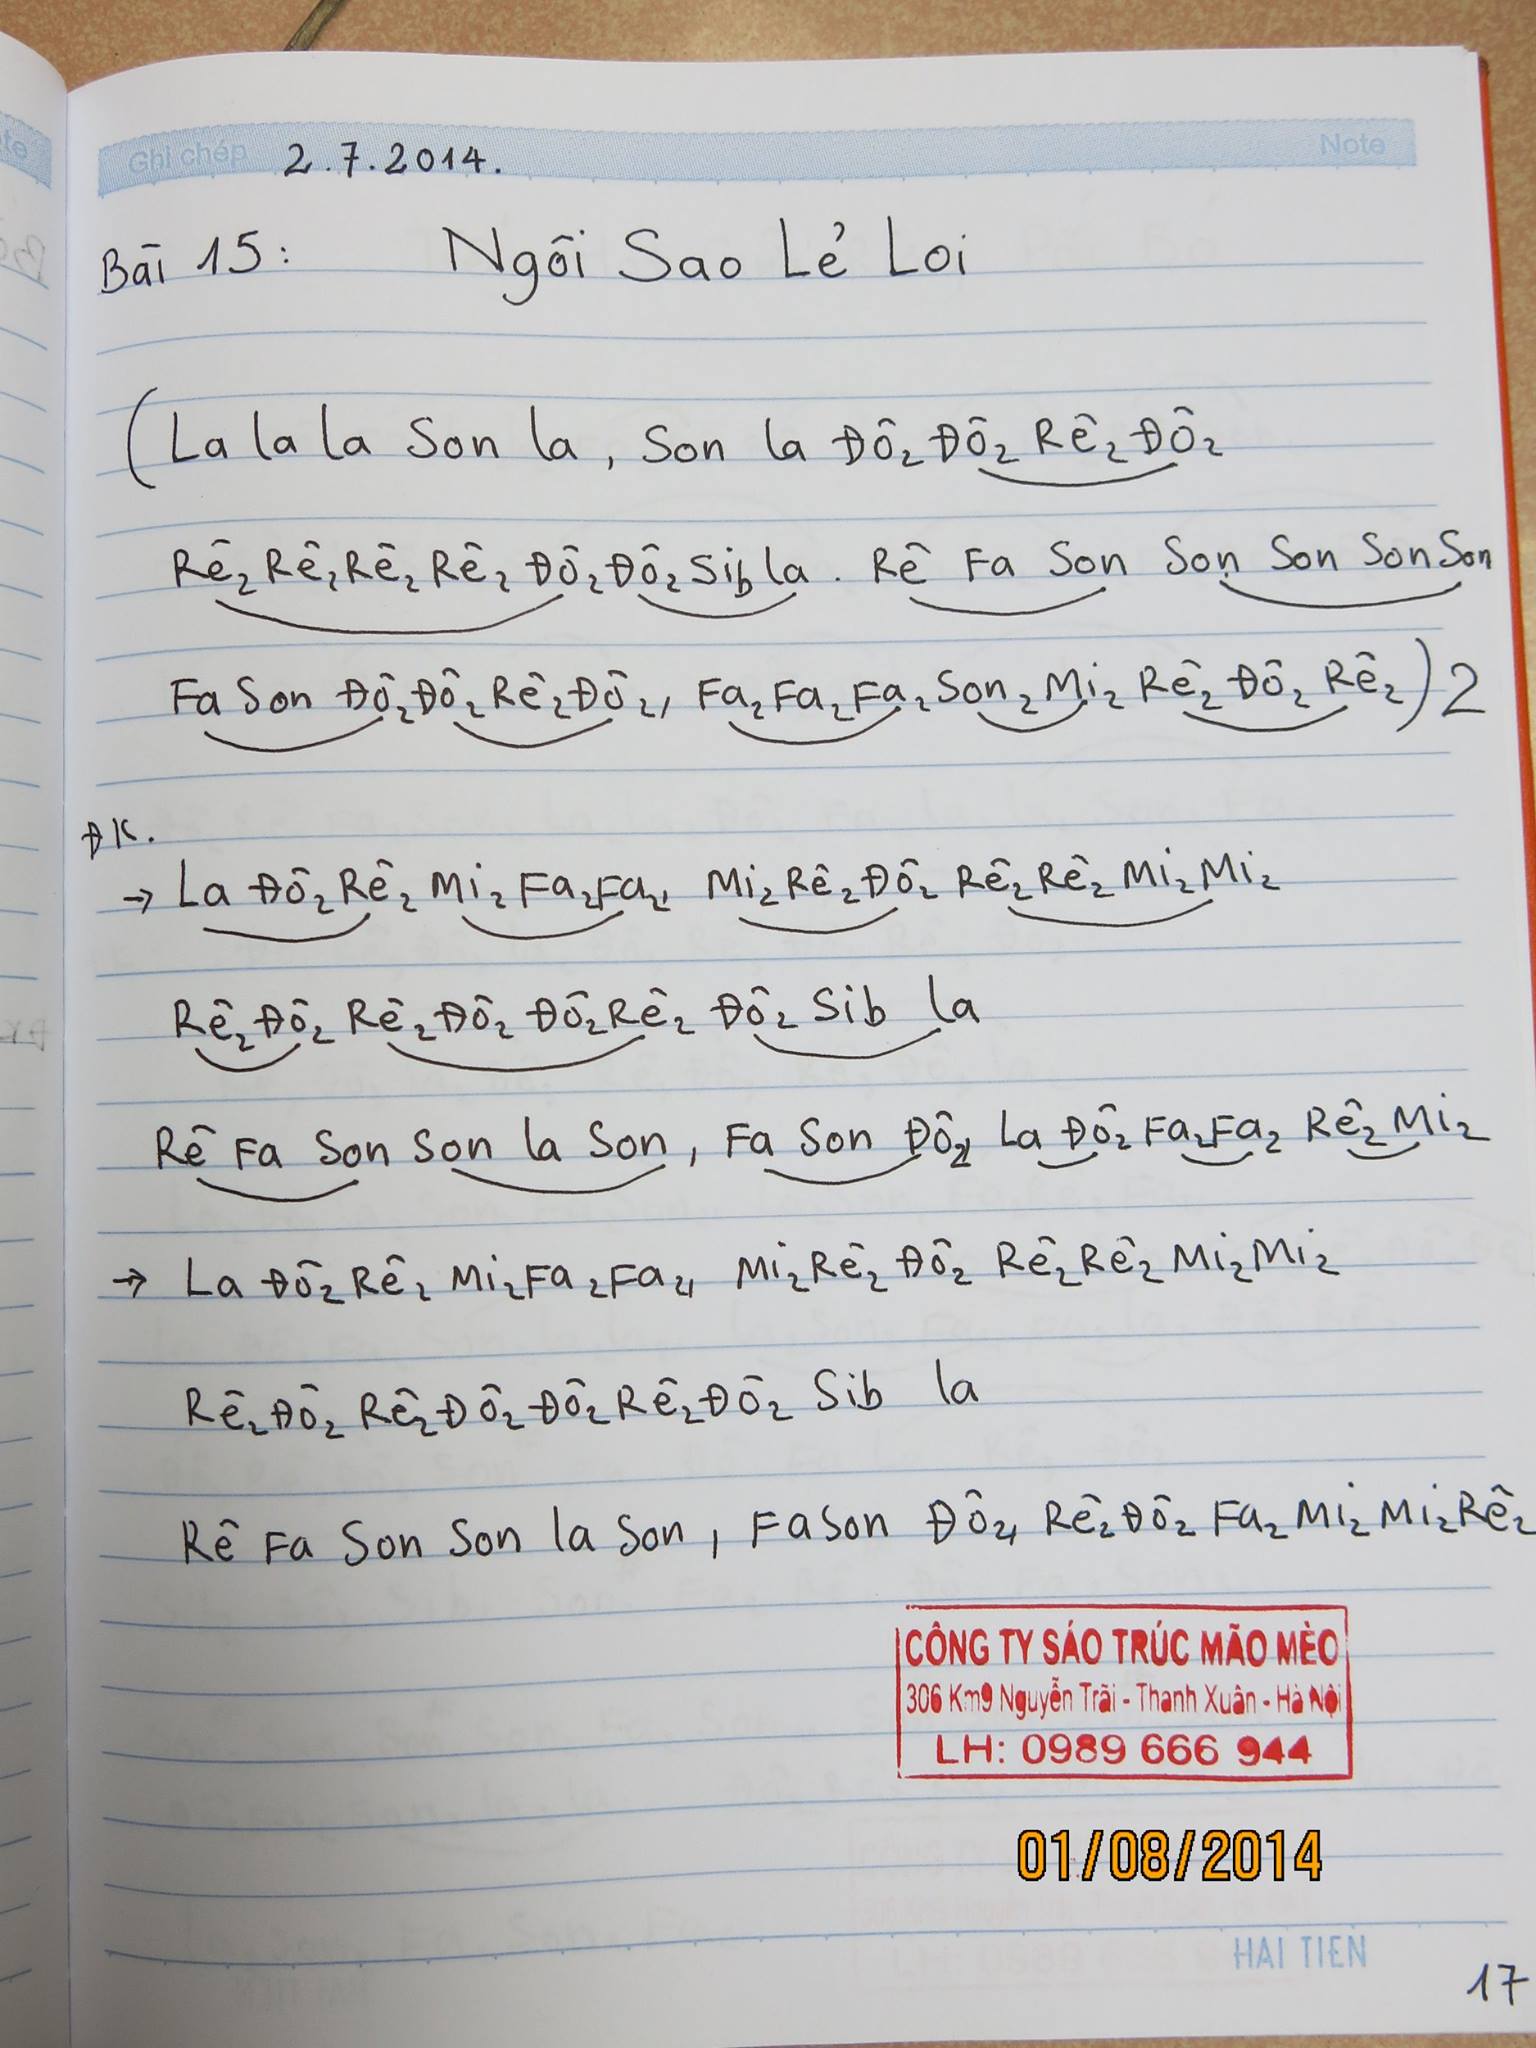 Ghi chép 2.7.2014. Note
Bài 15: Ngôi Sao Lẻ Loi
(La la la Son la, Son la Đô₂ Đô₂ Rê₂ Đô₂
Rê₂ Rê₂ Rê₂ Rê₂ Đô₂ Đô₂ Sib la. Rê Fa Son Son Son Son Son
Fa Son Đô₂ Đô₂ Rê₂ Đô₂, Fa₂ Fa₂ Fa₂ Son₂ Mi₂ Rê₂ Đô₂ Rê₂) 2
ĐK.
→ La Đô₂ Rê₂ Mi₂ Fa₂ Fa₂, Mi₂ Rê₂ Đô₂ Rê₂ Rê₂ Mi₂ Mi₂
Rê₂ Đô₂ Rê₂ Đô₂ Đô₂ Rê₂ Đô₂ Sib la
Rê Fa Son Son la Son, Fa Son Đô₂ La Đô₂ Fa₂ Fa₂ Rê₂ Mi₂
→ La Đô₂ Rê₂ Mi₂ Fa₂ Fa₂, Mi₂ Rê₂ Đô₂ Rê₂ Rê₂ Mi₂ Mi₂
Rê₂ Đô₂ Rê₂ Đô₂ Đô₂ Rê₂ Đô₂ Sib la
Rê Fa Son Son la Son, Fa Son Đô₂, Rê₂ Đô₂ Fa₂ Mi₂ Mi₂ Rê₂
CÔNG TY SÁO TRÚC MÃO MÈO
306 Km9 Nguyễn Trãi - Thanh Xuân - Hà Nội
LH: 0989 666 944
01/08/2014
HAI TIEN
17